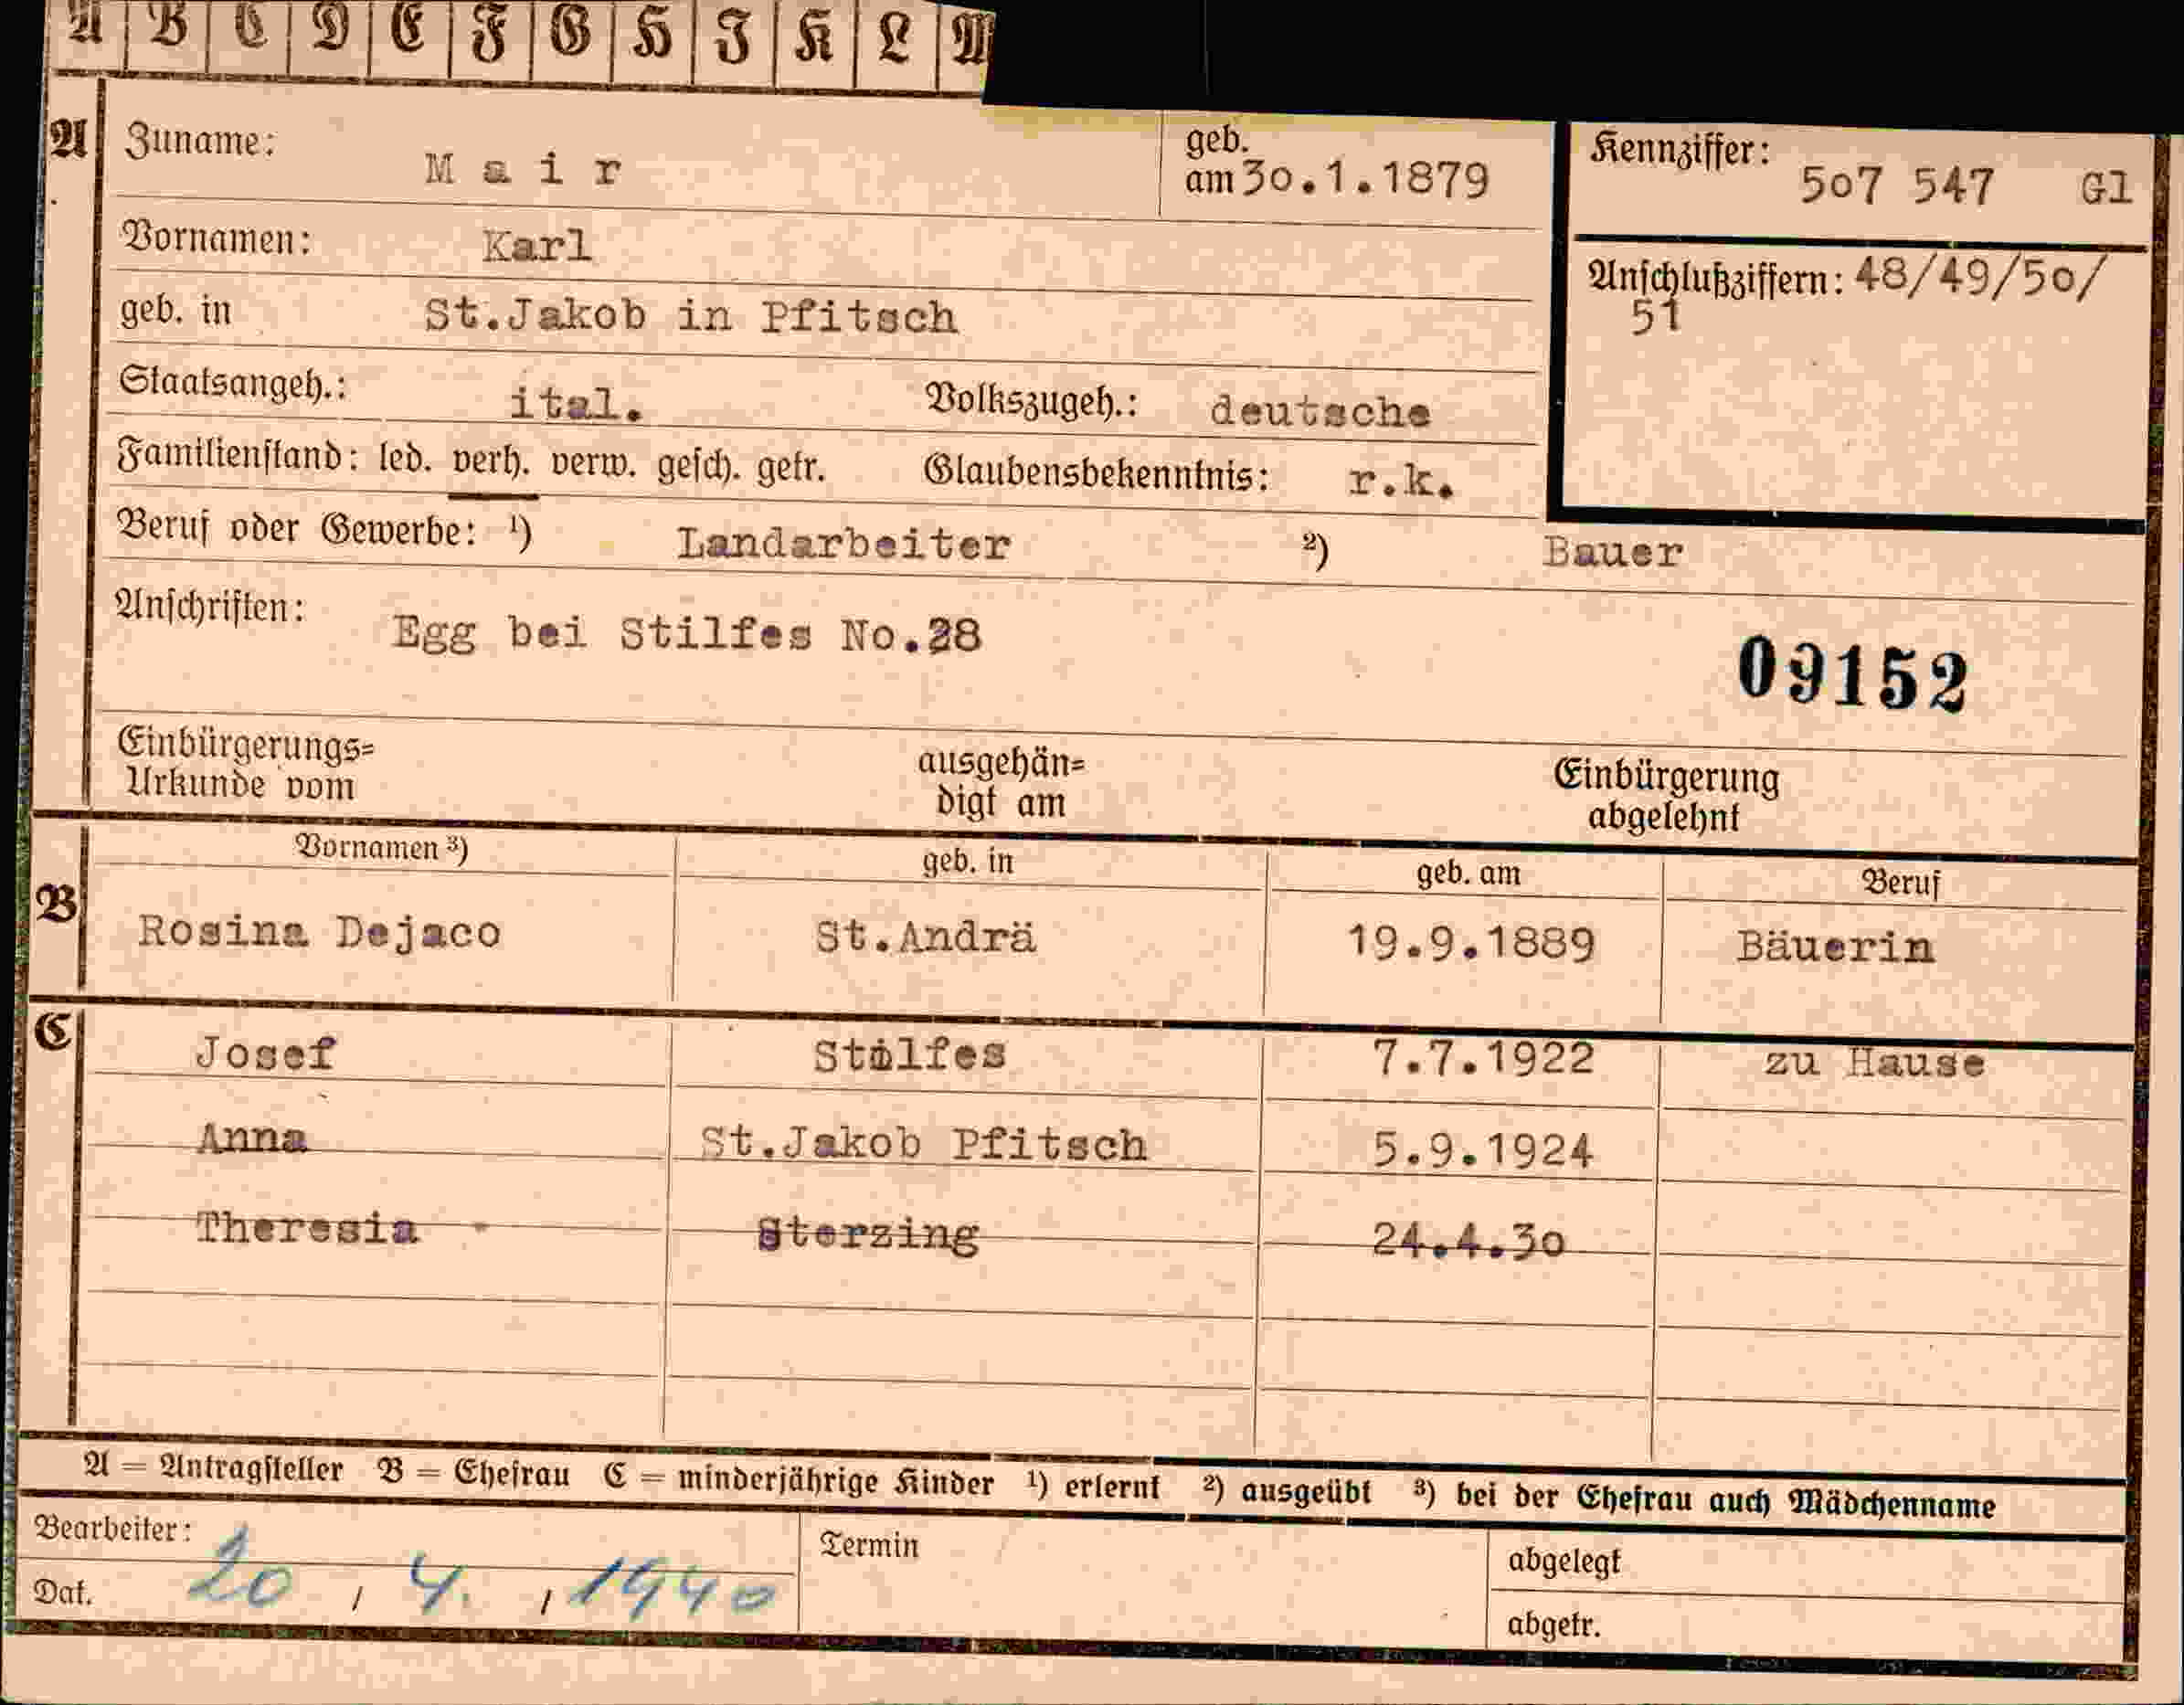 A B C D E F G H I K L M
A Zuname: Mair geb. am 30.1.1879 Kennziffer: 507 547 Gl
Vornamen: Karl
geb. in St.Jakob in Pfitsch Anschlußziffern: 48/49/50/
51
Staatsangeh.: ital. Volkszugeh.: deutsche
Familienstand: led. verh. verw. gesch. getr. Glaubensbekenntnis: r.k.
Beruf oder Gewerbe: ¹) Landarbeiter ²) Bauer
Anschriften: Egg bei Stilfes No.28
09152
Einbürgerungs= ausgehän= Einbürgerung
Urkunde vom digt am abgelehnt
Vornamen ³) geb. in geb. am Beruf
B Rosina Dejaco St.Andrä 19.9.1889 Bäuerin
C Josef Stilfes 7.7.1922 zu Hause
Anna St.Jakob Pfitsch 5.9.1924
Theresia Sterzing 24.4.30
A = Antragsteller B = Ehefrau C = minderjährige Kinder ¹) erlernt ²) ausgeübt ³) bei der Ehefrau auch Mädchenname
Bearbeiter: Termin abgelegt
Dat. 20 / 4. / 1940 abgetr.